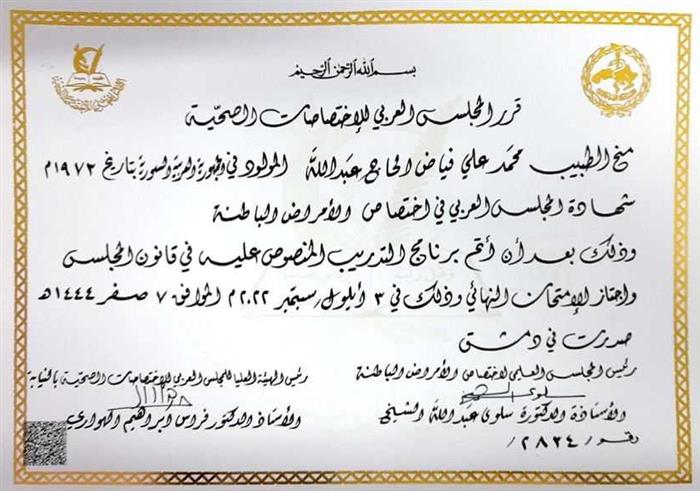 بسم الله الرحمن الرحيم
قرر المجلس العربي للإختصاصات الصحيّة
منح الطبيب محمد علي فياض الحاج عبدالله المولود في الجمهورية العربية السورية بتاريخ ١٩٧٢م
شهادة المجلس العربي في اختصاص الأمراض الباطنة
وذلك بعد أن أتم برنامج التدريب المنصوص عليه في قانون المجلس
واجتاز الإمتحان النهائي وذلك في ٣ أيلول/سبتمبر ٢٠٢٢م الموافق ٧ صفر ١٤٤٤هـ
صدرت في دمشق
رئيس المجلس العلمي لاختصاص الأمراض الباطنة
رئيس الهيئة العليا للمجلس العربي للإختصاصات الصحيّة بالنيابة
الأستاذة الدكتورة سلوى عبدالله الشيخ
الأستاذ الدكتور فراس ابراهيم الهواري
رقم /٢٨٣٤/